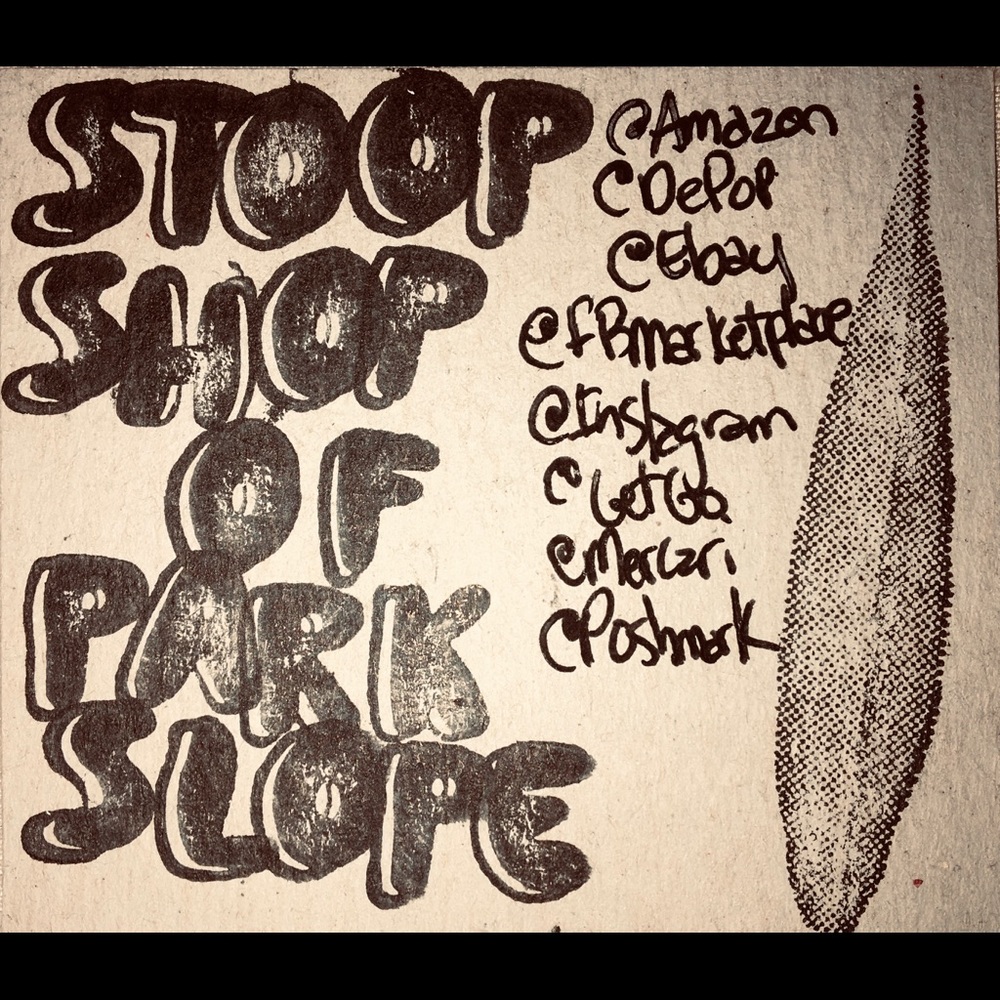 STOOP
SHOP
OF
PARK
SLOPE
@Amazon
@DePop
@Ebay
@fBmarketplace
@Instagram
@LetGo
@Mercari
@Poshmark